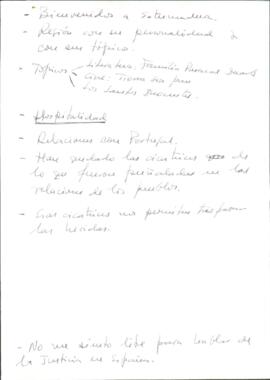 - Bienvenidos a Extremadura
- Región con su personalidad y
con sus tópicos.
- Tópicos Literatura: Familia Pascual Duarte
Cine: Tierra sin pan
Los Santos Inocentes.
- Hospitalidad
- Relaciones con Portugal.
- Han quedado las cicatrices de
lo que fueron en las
relaciones de los pueblos.
- Las cicatrices no permiten
las heridas.
- No me siento libre para hablar de
la Justicia en España.